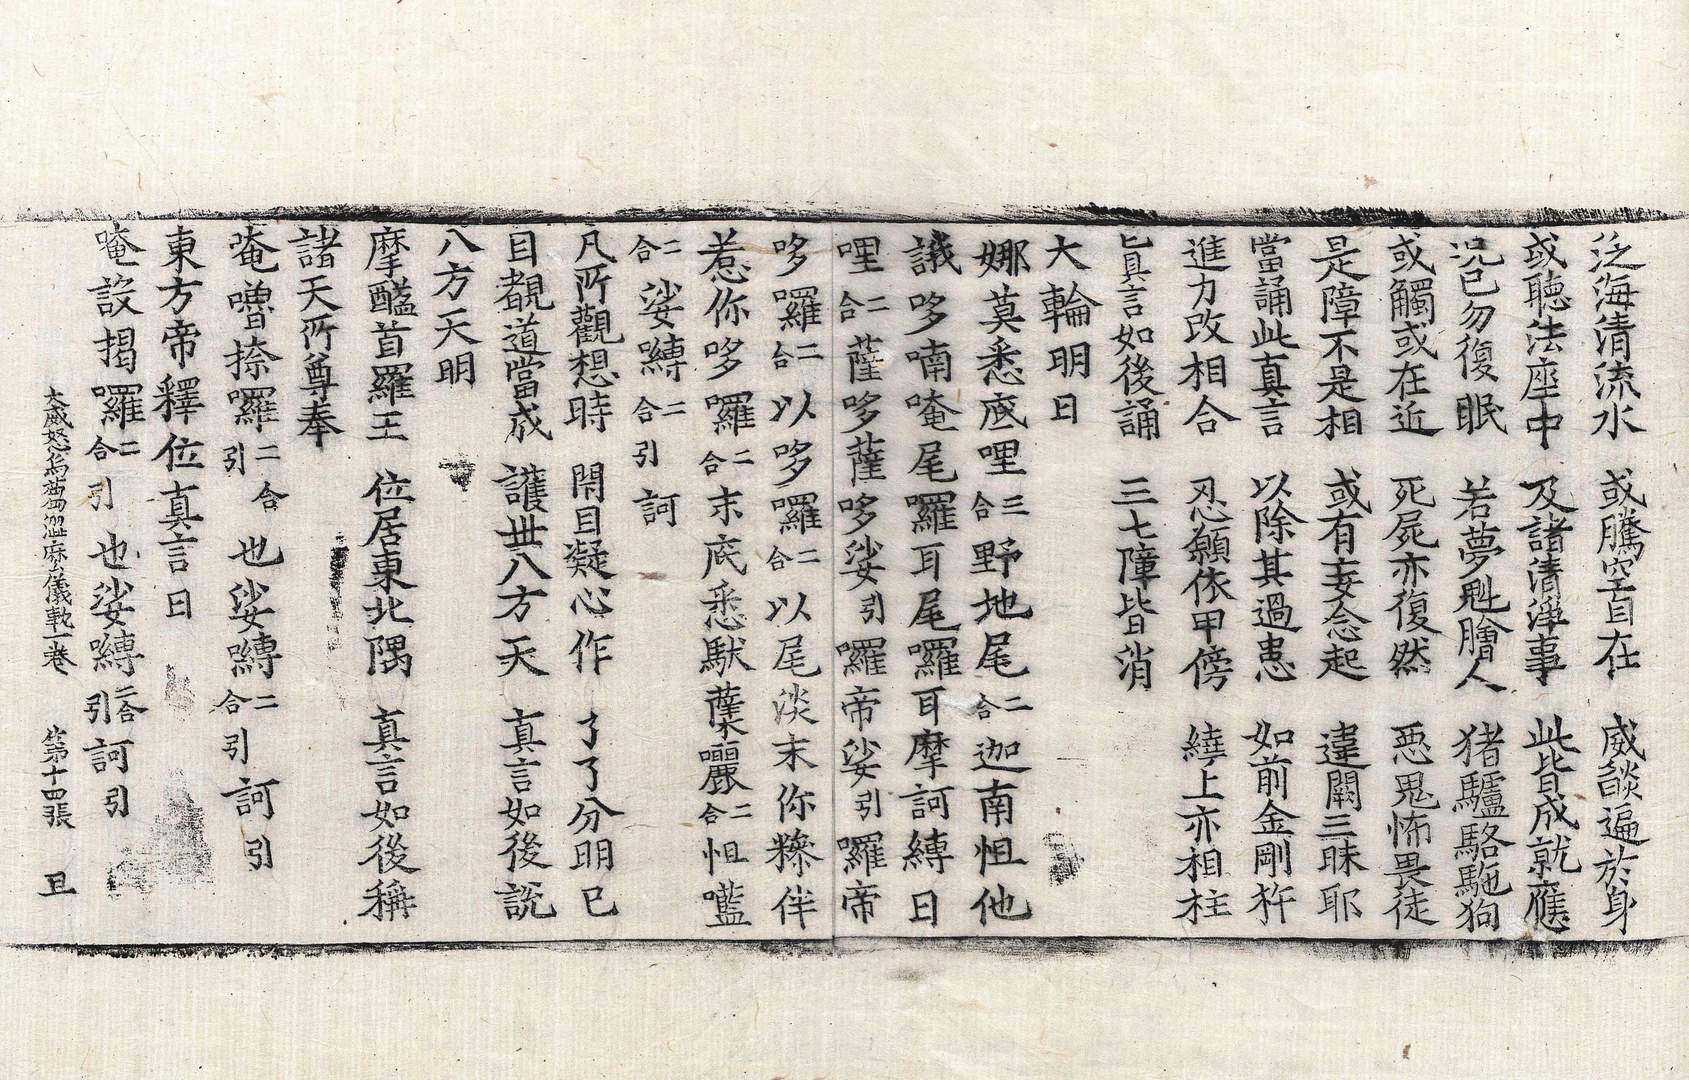 泛海清流水　或騰空自在　威談遍於身
或聽法座中　及諸清淨事　此皆成就應
况已勿復眠　若夢魁膾人　猪驢駱駞狗
或觸或在近　死屍亦復然　惡鬼怖畏徒
是障不是相　或有妄念起　違闕三昧耶
當誦此真言　以除其過患　如前金剛杵
進力改相合　忍願依甲傍　繞上亦相柱
㫖真言如後誦　三七障皆消
大輪明曰
娜莫悉底哩三合野地尾二合迦南怛他
誐哆喃唵尾囉耳尾囉耳摩訶縛日
哩二合薩哆薩哆娑引囉帝娑引囉帝
哆囉二合以哆囉二合以尾淡末你糝伴
惹你哆囉二合末底悉馱蘖㘑二合怛㘕
二合娑嚩二合引訶
凡所觀想時　閉目凝心作　了了分明已
目覩道當成　護世八方天　真言如後説
八方天明
摩醯首羅王　位居東北隅　真言如後稱
諸天所尊奉
菴嚕捺囉二合也娑嚩二合引訶引
東方帝釋位真言曰
唵設揭囉二合引也娑嚩二合引訶引
大威怒烏蒭澁麽儀軌一卷　第十四張　旦